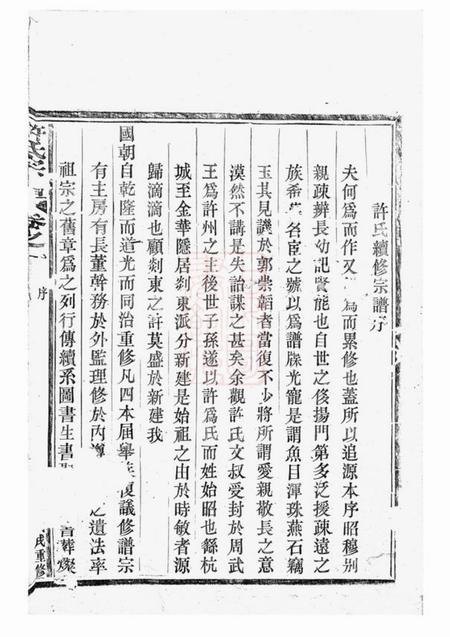 許氏續修宗譜序
夫何爲而作又 爲而累修也蓋所以追源本序昭穆别
親疎辨長幼記賢能也自世之侈揚門第多泛援疎遠之
族希 名宦之號以爲譜牒光寵是謂魚目渾珠燕石竊
玉其見譏於郭崇韜者當復不少將所謂愛親敬長之意
漠然不講是失詒謀之甚矣余觀許氏文叔受封於周武
王爲許州之主後世子孫遂以許爲氏而姓始昭也繇杭
城至金華隱居剡東派分新建是始祖之由於時敏者源
歸滴滴也顧剡東之許莫盛於新建我
國朝自乾隆而道光而同治重修凡四本届舉 復議修譜宗
有主房有長董幹務於外監理修於内
祖宗之舊章爲之列行傳續系圖書生書
之遺法率
許氏宗 卷之一
序
戌重修